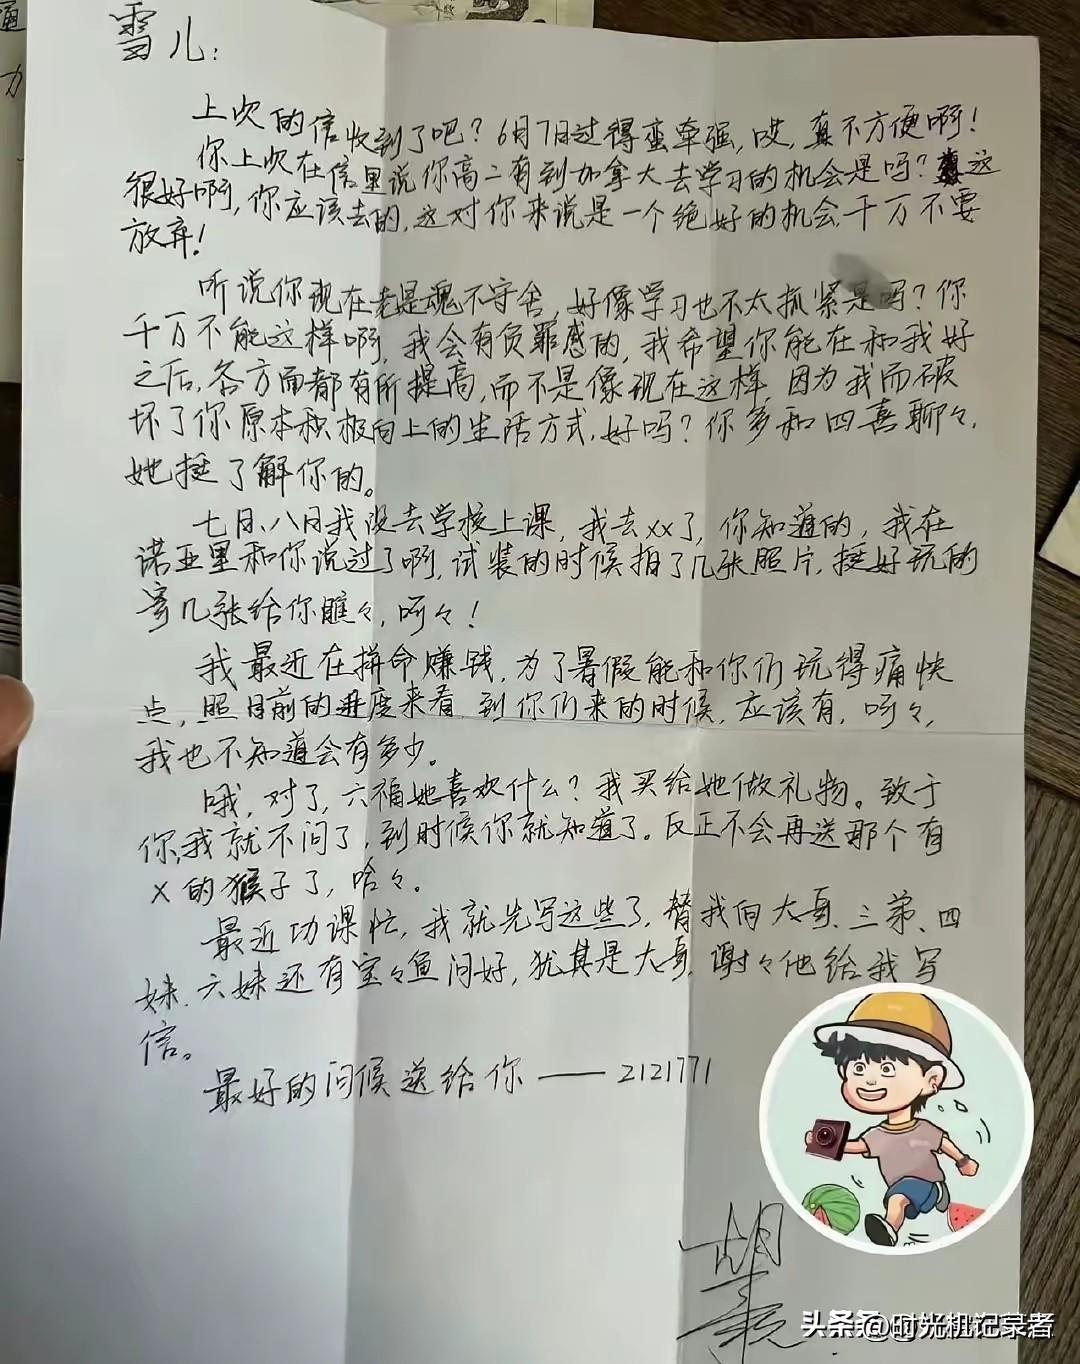 雪儿：
上次的信收到了吧？6月7日过得蛮牵强，哎，真不方便啊！
你上次在信里说你高二有到加拿大去学习的机会是吗？这
很好啊，你应该去的，这对你来说是一个绝好的机会，千万不要
放弃！
听说你现在老是魂不守舍，好像学习也不太抓紧是吗？你
千万不能这样啊，我会有负罪感的，我希望你能在和我好
之后，各方面都有所提高，而不是像现在这样，因为我而破
坏了你原本积极向上的生活方式，好吗？你多和四喜聊々，
她挺了解你的。
七月、八月我没去学校上课，我去xx了，你知道的，我在
诺亚里和你说过了啊，试装的时候拍了几张照片，挺好玩的
寄几张给你瞧々，呵々！
我最近在拼命赚钱，为了暑假能和你们玩得痛快
点，照目前的进度来看，到你们来的时候，应该有，呵々，
我也不知道会有多少。
哦，对了，六福她喜欢什么？我买给她做礼物。致于
你，我就不问了，到时候你就知道了。反正不会再送那个有
X的猴子了，哈々。
最近功课忙，我就先写这些了，替我向大哥、三弟、四
妹、六妹还有宝々鱼问好，犹其是大哥，谢々他给我写
信。
最好的问候送给你——2121771
胡
头条 @时光机记录者